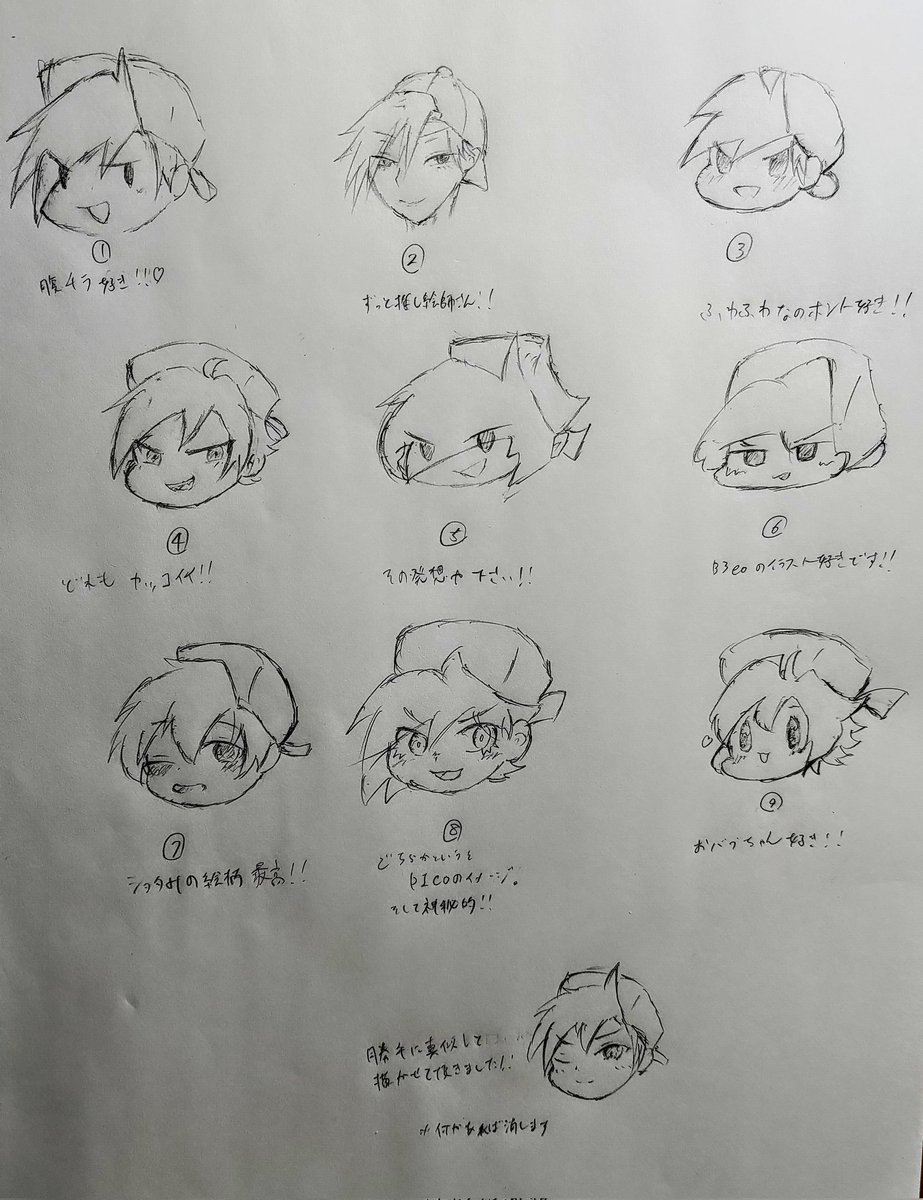 ①
腹チラ好き!!♡
②
ずっと推し絵師さん!!
③
ふわふわなのホント好き!!
④
どれもカッコイイ!!
⑤
その発想下さい!!
⑥
のイラスト好きです!!
⑦
の絵柄最高!!
⑧
どちらかというと
PIcoのイメージ。
そして神秘的!!
⑨
おバブちゃん好き!!
勝手に真似して
描かせて頂きました!!
※何かあれば消します